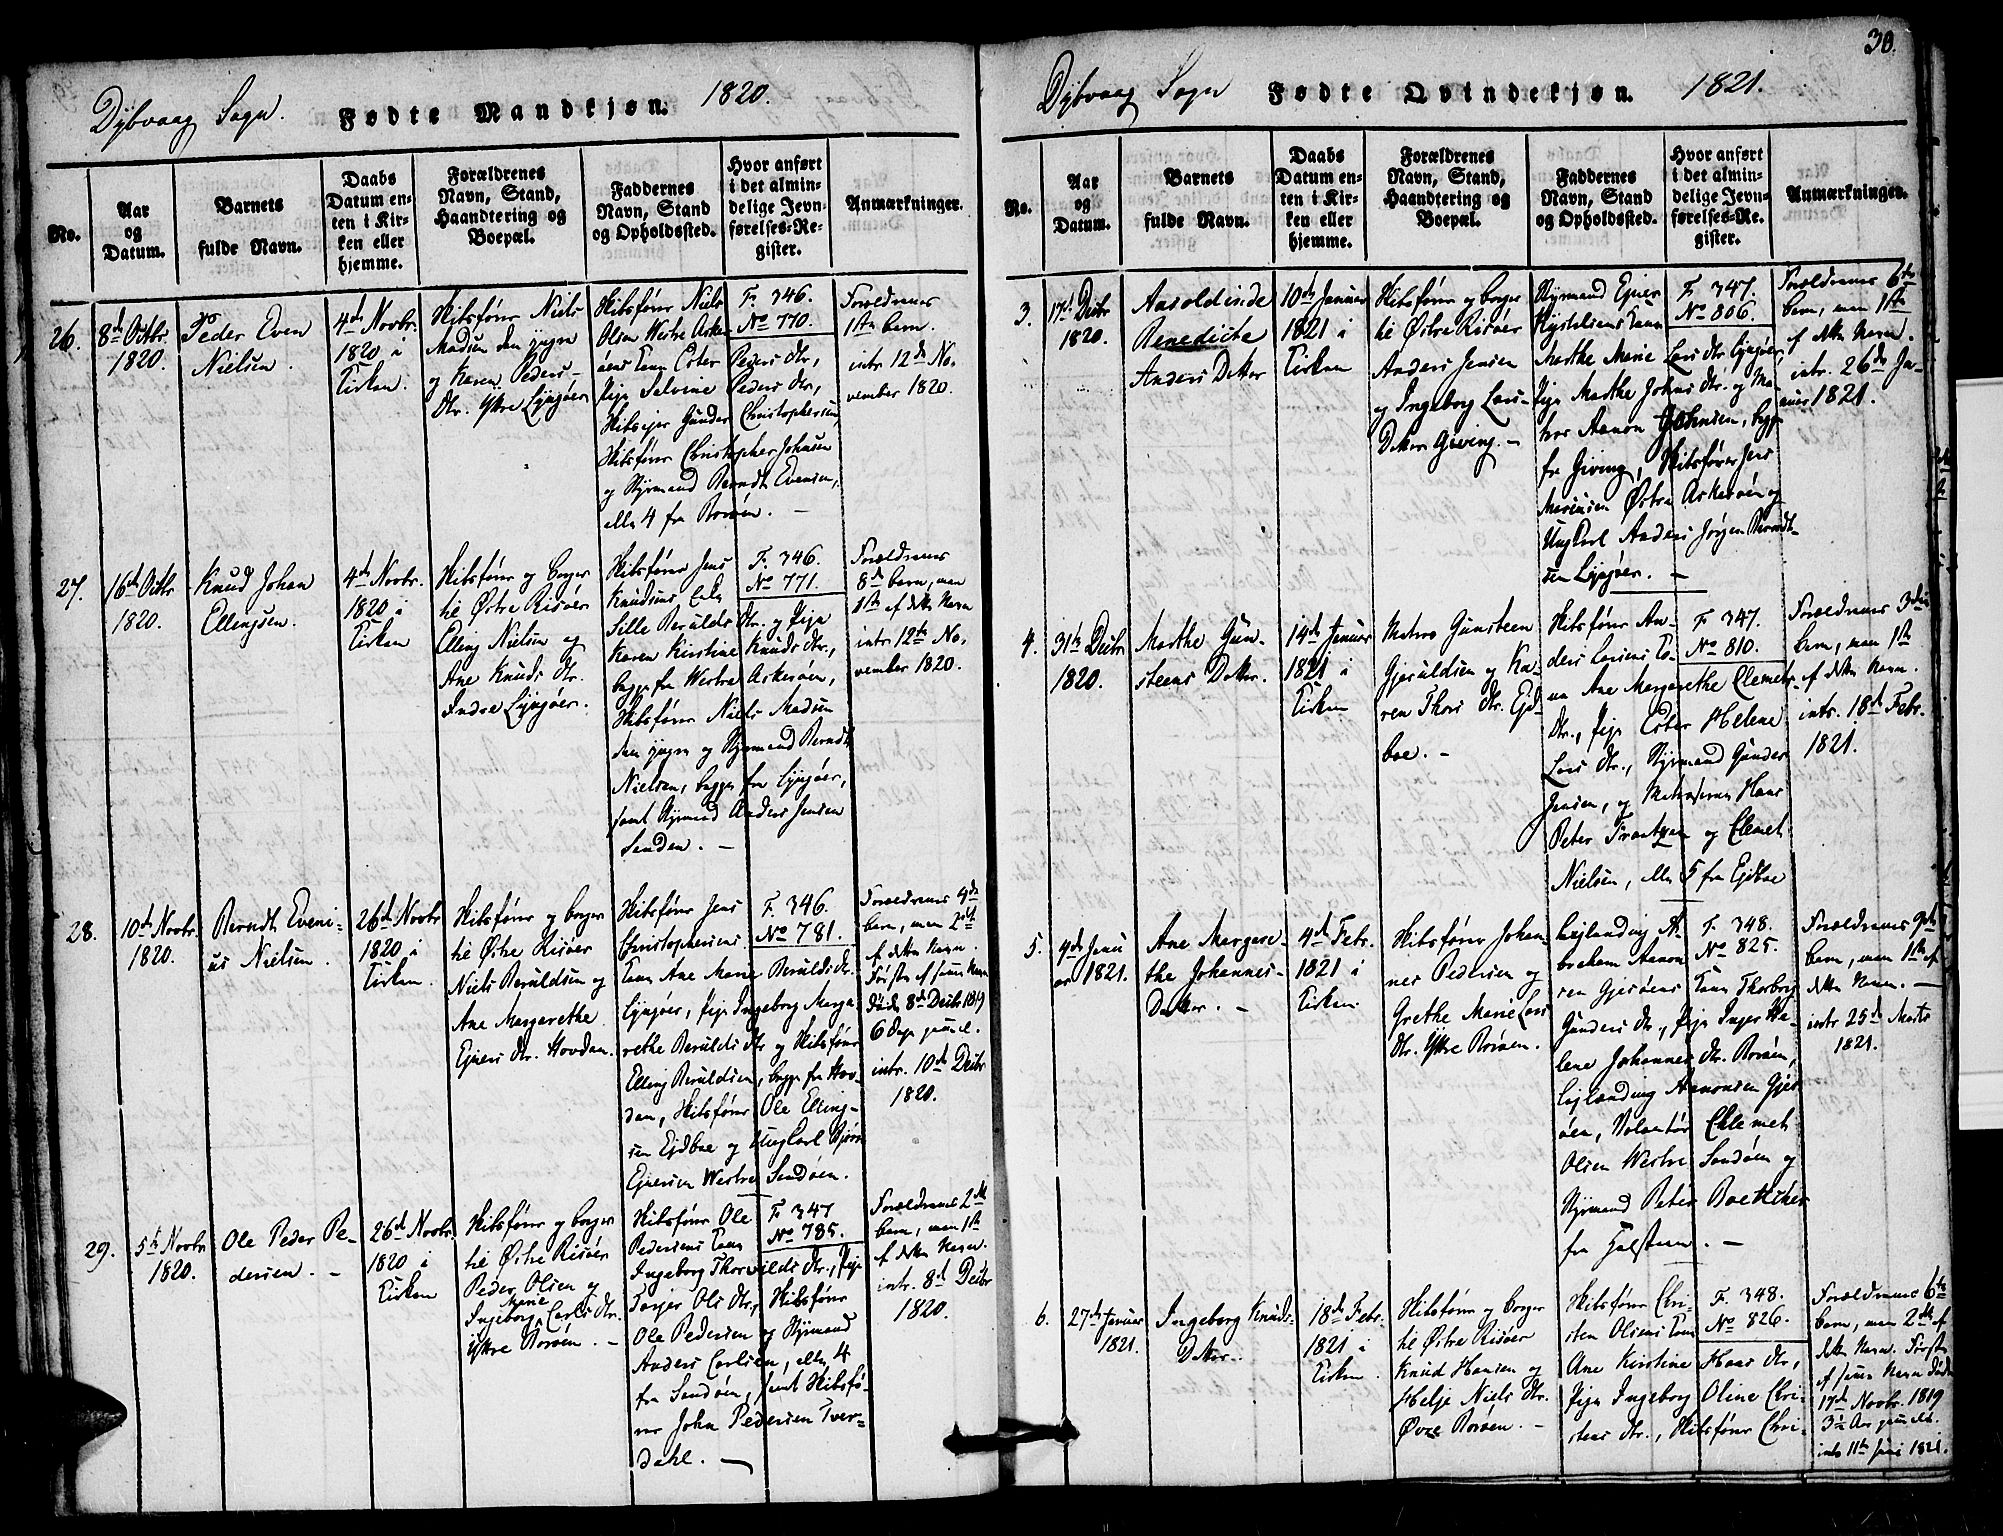 30.
Dybvaag Sogn. Fødte Mandkjøn. 1820.
No.
Aar
og
Datum.
Barnets
fulde Navn.
Daabs
Datum en-
ten i Kir-
ken eller
hjemme.
Forældrenes
Navn, Stand,
Haandtering og
Boepæl.
Faddernes
Navn, Stand
og Opholdssted.
Hvor anført
i det almin-
delige Jevn-
førelses-Re-
gister.
Anmærkninger.
26.
8de Octbr
1820.
Peder Even
Nielsen.
4de Novbr.
1820 i
Kirken.
Skibsfører Niels
Madsen den yngre
og Karen Peders-
Dtr. Ytre Lyngøer
Skibsfører Niels
Olsen Westre Aske-
øens Kone Ester Peders Dtr,
Pige Selvine Peders Dtr,
Skibseier Gunder Christophersen,
Skibsfører Christopher Johnsen
og Styrmand Berndt Evensen,
alle 4 fra Borøen. -
F. 346.
No 770.
Forældrenes
1ste barn.
intr. 12de No-
vember 1820.
27.
16de Octbr
1820.
Knud Johan
Ellingsen.
4de Novbr.
1820 i
Kirken
Skibsfører og borger
til Østre Risøer
Elling Nielsen og
Ane Knuds Dtr.
Indre Lyngøer.
Skibsfører Jens
Knudsens Enke
Sille Berulds Dtr. og Pige
Karen Kirstine Knuds Dtr.,
begge fra Westre Askerøen,
Skibsfører Niels Madsen
den yngre og Styrmand Berndt
Nielsen, begge fra Lyngøer,
samt Styrmand Anders Jensen
Sanden. -
F. 346.
No 771.
Forældrenes
8de barn, men
1ste af dette Navn
intr 12te No-
vember 1820.
28.
10de Novbr.
1820.
Berndt Eveni-
us Nielsen.
26de Novbr
1820 i
Kirken.
Skibsfører og borger
til Østre Risøer
Niels Beruldsen og
Ane Margarethe
Ejners Dtr. Hovdan.
Skibsfører Jens
Christophersens
Kone Ane Marie Berulds Dtr.
Lyngøer, Pige Ingeborg Marga-
rethe Berulds Dtr og Skibsfører
Elling Beruldsen, begge fra Hov-
dan, Skibsfører Ole Elling-
sen Ejdboe og Ungkarl
Ejnersen Westre Sandøen.
F. 346.
No 781.
Forældrenes 4de
barn, men 2det
af dette Navn.
Første af samme Navn
døde 8de Decbr 1819
6 dage gammel.
intr. 10de Decbr
1820.
29.
5te Novbr
1820.
Ole Peder Pe-
dersen. -
26de Novbr.
1820 i
Kirken
Skibsfører og borger
til Østre Risøer
Peder Olsen og
Marie
Ingeborg Carls Dtr.
Ytre Borøen. -
Skibsfører Ole
Pedersens Kone
Ingeborg Thorvalds Dtr., Pige
Torjer Ols Dtr, Skibsfører
Ole Pedersen og Styrmand
Anders Carlsen, alle 4
fra Sandøen, samt Skibsfø-
rer John Pedersen Tver-
dahl. -
F. 347
No 785.
Forældrenes 2det
barn, men 1ste
af dette Navn.
intr. 8de Decbr
1820.
Dybvaag Sogn Fødte Qvindekjøn. 1821.
No.
Aar
og
Datum.
Barnets
fulde Navn.
Daabs
Datum en-
ten i Kir-
ken eller
hjemme.
Forældrenes
Navn, Stand,
Haandtering og
Boepæl.
Faddernes
Navn, Stand
og Opholdssted.
Hvor anført
i det almin-
delige Jevn-
førelses-Re-
gister.
Anmærkninger.
3.
17de Decbr
1820.
Aasoldinde
Benedicte
Anders Datter
10de Januar
1821 i
Kirken
Skibsfører og borger
til Østre Risøer
Anders Jensen
og Ingeborg Lars-
Datter Giving. -
Styrmand Ejner
Kone
Marthe Marie Lars Dtr Lyngøer,
Pige Marthe Johns Dtr. og Ma-
tros Aanon Johnsen, begge
fra Giving, Skibsfører Jens
Mariusen Østre Askerøen og
Ungkarl Anders Jørgen Berndt-
sen Lyngøer. -
F. 347.
No 806.
Forældrenes 6te
barn, men 1ste
af dette Navn.
intr. 26de Ja-
nuar 1821.
4.
31te Decbr
1820.
Marthe Gun-
steens Datter.
14de Januar
1821 i
Kirken
Matros Gunsteen
Gjeruldsen og Ka-
ren Thors Dtr. Ejd-
boe. -
Skibsfører An-
ders Larsens Ko-
ne Ane Margarethe Clemets-
Dtr., Pige Ester Helene
Lars Dtr., Styrmand Gunder
Jensen, og Matroserne Hans
Peter Trootzen og Clemet
Nielsen, alle 5 fra Ejdboe
F. 347.
No 810.
Forældrenes 3die
barn, men 1ste
af dette Navn.
intr. 18de Febr.
1821.
5.
4de Janu
ar 1821.
Ane Margare-
the Johannes-
Datter. -
4de Febr.
1821 i
Kirken
Skibsfører Johan-
nes Pedersen og
Grethe Marie Lars
Dtr. Ytre Borøen.
Lejlending A-
braham Aanon-
sen Gjesøens Kone Thorborg
Gunders Dtr., Pige Inger He-
lene Johannes Dtr. Borøen,
Lejlænding Aanonsen Gjes-
øen, Volontør Ehlemet
Olsen Westre Sandøen og
Styrmand Peter Boetticher
fra Holsteen. -
F. 348.
No 825.
Forældrenes 9de
barn, men 1ste af
dette Navn. -
intr 25de Marts
1821.
6.
27de Januar
1821.
Ingeborg Knuds-
Datter.
18de Febr.
1821 i
Kirken.
Skibsfører og borger
til Østre Risøer
Knud Hansen og
Helje Niels Dtr.
Øvre Borøen. -
Skibsfører Chri-
sten Olsens Kone
Ane Kirstine Hans Dtr,
Pige Ingeborg Oline Chri-
stens Dtr., Skibsfører Chri-
F. 348.
No 826.
Forældrenes 6te
barn, men 2det af
dette Navn. Første
af samme Navn døde
17de Novbr. 1819
3½ Aar gammel.
intr 11te Juni 1821.